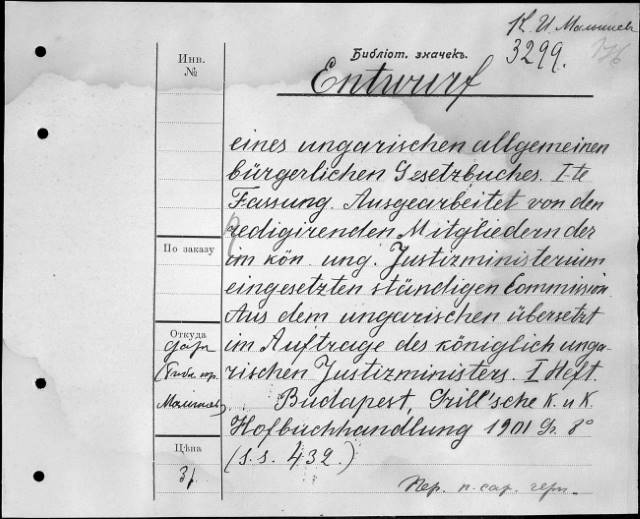 К И Малышев
Библіот. значекъ.
3299.
Инв.
№
Entwurf
eines ungarischen allgemeinen
bürgerlichen Gesetzbuches. I-te
Fassung. Ausgearbeitet von den
redigirenden Mitgliedern der
По заказу
im kön. ung. Justizministerium
eingesetzten ständigen Commission.
Aus dem ungarischen übersetzt
Откуда
даръ
im Auftrage des königlich unga-
rischen Justizministers. I Heft.
Малышев
Budapest, Grill'sche K. u K.
Hofbuchhandlung 1901 Gr. 8°
Цѣна
3р
(s.s. 432.)
Пер. п. сар. черн.